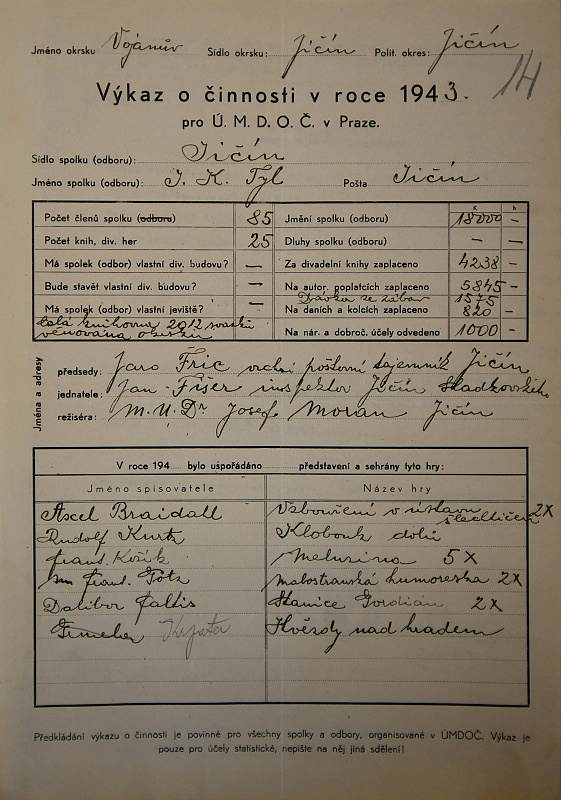 Jméno okrsku Vojanův Sídlo okrsku: Jičín Polit. okres: Jičín
14
Výkaz o činnosti v roce 1943.
pro Ú. M. D. O. Č. v Praze.
Sídlo spolku (odboru): Jičín
Jméno spolku (odboru): J. K. Tyl Pošta Jičín
K h
Počet členů spolku (odboru) 85 Jmění spolku (odboru) 18000 –
Počet knih, div. her 25 Dluhy spolku (odboru) — —
Má spolek (odbor) vlastní div. budovu? — Za divadelní knihy zaplaceno 4238 –
Bude stavět vlastní div. budovu? — Na autor. poplatcích zaplaceno 5845 –
Dávka ze zábav 1575
Má spolek (odbor) vlastní jeviště? — Na daních a kolcích zaplaceno 820 –
celá knihovna 2012 svazků
věnována okrsku Na nár. a dobroč. účely odvedeno 1000 –
Jména a adresy
předsedy: Jaro Fric vrchní poštovní tajemník Jičín
jednatele: Jan Fišer inspektor Jičín Sladkovského
režiséra: M.U.Dr Josef Moran Jičín
V roce 194 bylo uspořádáno představení a sehrány tyto hry:
Jméno spisovatele Název hry
Axel Braidall Vzbouření v ústavu šlechtičen 2X
Rudolf Kurtz Klobouk dolů
Frant. Kožík Meluzina 5X
Frant. Götz Malostranská humoreska 2X
Dalibor Faltis Stanice Gordian 2X
Hvězdy nad hradem
Předkládání výkazu o činnosti je povinné pro všechny spolky a odbory, organisované v ÚMDOČ. Výkaz je
pouze pro účely statistické, nepište na něj jiná sdělení!